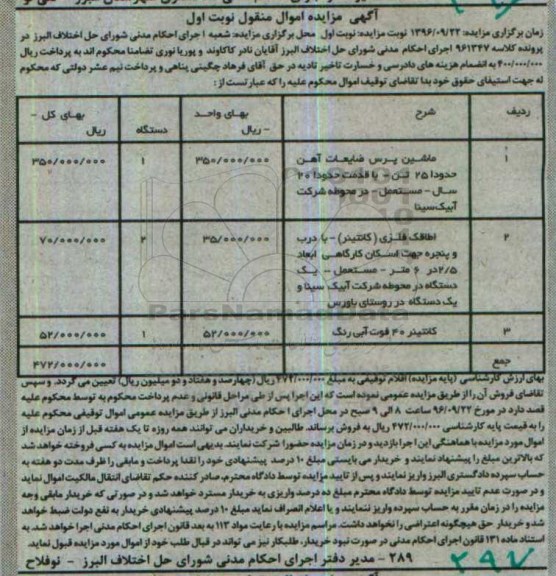 آگهی مزایده اموال منقول نوبت اول
زمان برگزاری مزایده: ۱۳۹۶/۰۹/۲۲ نوبت مزایده: نوبت اول محل برگزاری مزایده: شعبه ۱ اجرای احکام مدنی شورای حل اختلاف البرز در
پرونده کلاسه ۹۶۱۳۴۷ اجرای احکام مدنی شورای حل اختلاف البرز آقایان نادر کاکاوند و پوریا نوری تضامنا محکوم اند به پرداخت ریال
۴۰۰/۰۰۰/۰۰۰ به انضمام هزینه های دادرسی و خسارت تاخیر تادیه در حق آقای فرهاد چگینی پناهی و پرداخت نیم عشر دولتی که محکوم
له جهت استیفای حقوق خود بدا تقاضای توقیف اموال محکوم علیه را که عبارتست از:
ردیف شرح بهای واحد - ریال دستگاه بهای کل - ریال
۱ ماشین پرس ضایعات آهن ۳۵۰/۰۰۰/۰۰۰ ۱ ۳۵۰/۰۰۰/۰۰۰
حدودا ۲۵ تن - با قدمت حدودا ۲۰
سال - مستعمل - در محوطه شرکت
آبیک سینا
۲ اطاقک فلزی (کانتینر) - با درب ۳۵/۰۰۰/۰۰۰ ۲ ۷۰/۰۰۰/۰۰۰
و پنجره جهت اسکان کارگاهی ابعاد
۲/۵ در ۶ متر - مستعمل - یک
دستگاه در محوطه شرکت آبیک سینا و
یک دستگاه در روستای باورس
۳ کانتینر ۴۰ فوت آبی رنگ ۵۲/۰۰۰/۰۰۰ ۱ ۵۲/۰۰۰/۰۰۰
جمع ۴۷۲/۰۰۰/۰۰۰
ParsNamadData
بهای ارزش کارشناسی (پایه مزایده) اقلام توقیفی به مبلغ ۴۷۲/۰۰۰/۰۰۰ ریال (چهارصد و هفتاد و دو میلیون ریال) تعیین می گردد. و سپس
تقاضای فروش آن را از طریق مزایده عمومی نموده است که این اجرا پس از طی مراحل قانونی و عدم پرداخت محکوم به توسط محکوم علیه
قصد دارد در مورخ ۹۶/۰۹/۲۲ ساعت ۸ الی ۹ صبح در محل اجرای احکام مدنی البرز از طریق مزایده عمومی اموال توقیفی محکوم علیه
را به قیمت پایه کارشناسی ۴۷۲/۰۰۰/۰۰۰ ریال به فروش برساند. طالبین و خریداران می توانند همه روزه تا یک هفته قبل از زمان مزایده از
اموال مورد مزایده با هماهنگی این اجرا بازدید و در زمان مزایده حضورا شرکت نمایند. بدیهی است اموال مزایده به کسی فروخته خواهد شد
که بالاترین مبلغ را پیشنهاد نمایند و خریدار می بایستی مبلغ ۱۰ درصد پیشنهادی خود را نقدا پرداخت و مابقی را ظرف مدت دو هفته به
حساب سپرده دادگستری البرز واریز نمایند و پس از تایید مزایده توسط دادگاه محترم صادر کننده حکم تقاضای انتقال مالکیت اموال نماید
و در صورت عدم تایید مزایده توسط دادگاه محترم مبلغ ده درصد واریزی به خریدار مسترد خواهد شد و در صورتی که خریدار مابقی وجه
مزایده را در زمان مقرر به حساب سپرده واریز ننمایند و یا اعلام انصراف نماید مبلغ ۱۰ درصد پیشنهادی خریدار به نفع دولت ضبط خواهد
شد و خریدار حق هیچگونه اعتراضی را نخواهد داشت. مراسم مزایده با رعایت مواد ۱۱۲ به بعد قانون اجرای احکام مدنی اجرا خواهد شد. به
استناد ماده ۱۳۱ قانون اجرای احکام مدنی در صورت نبود خریدار، طلبکار نیز می تواند در قبال طلب خود از اموال مورد مزایده قبول نماید.
۲۸۹ - مدیر دفتر اجرای احکام مدنی شورای حل اختلاف البرز - نوفلاح
۲۹۷